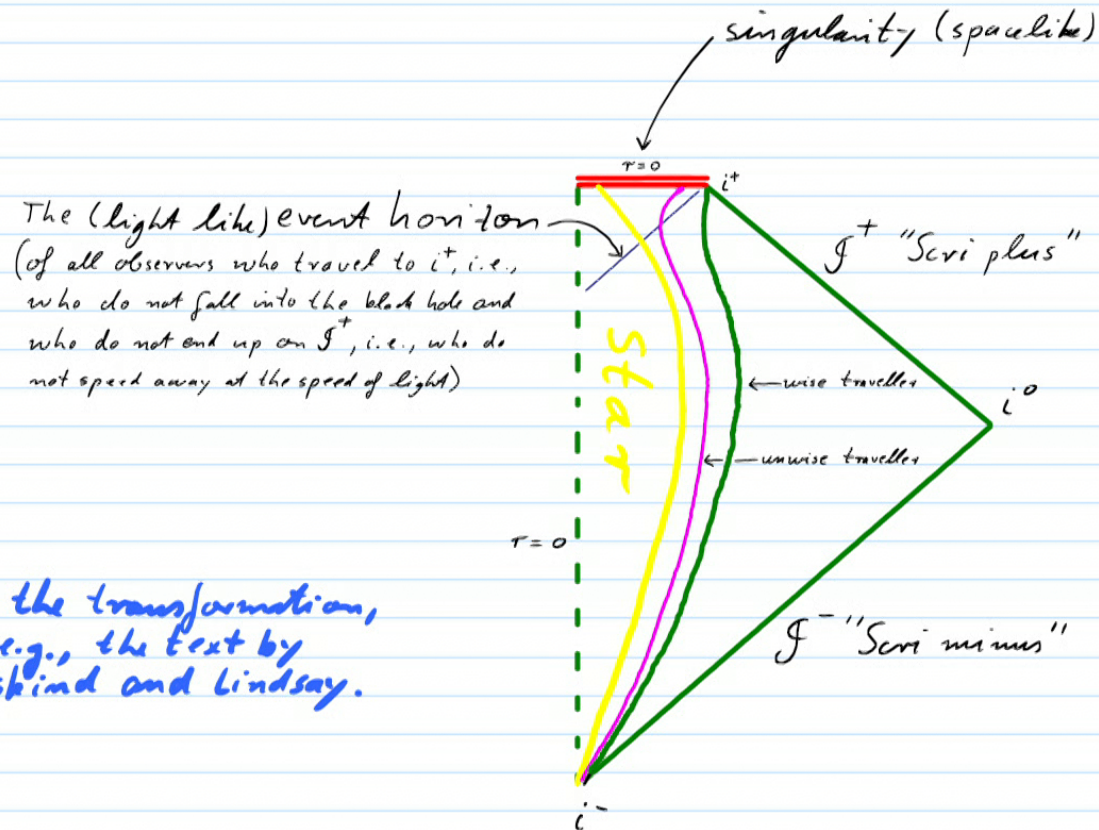 singularity (spacelike)
r=0
i⁺
The (light like) event horizon
(of all observers who travel to i⁺, i.e.,
who do not fall into the black hole and
who do not end up on 𝓘⁺, i.e., who do
not speed away at the speed of light)
𝓘⁺ "Scri plus"
star
←wise traveller
i⁰
←unwise traveller
r=0
the transformation,
e.g., the text by
skind and Lindsay.
𝓘⁻ "Scri minus"
i⁻